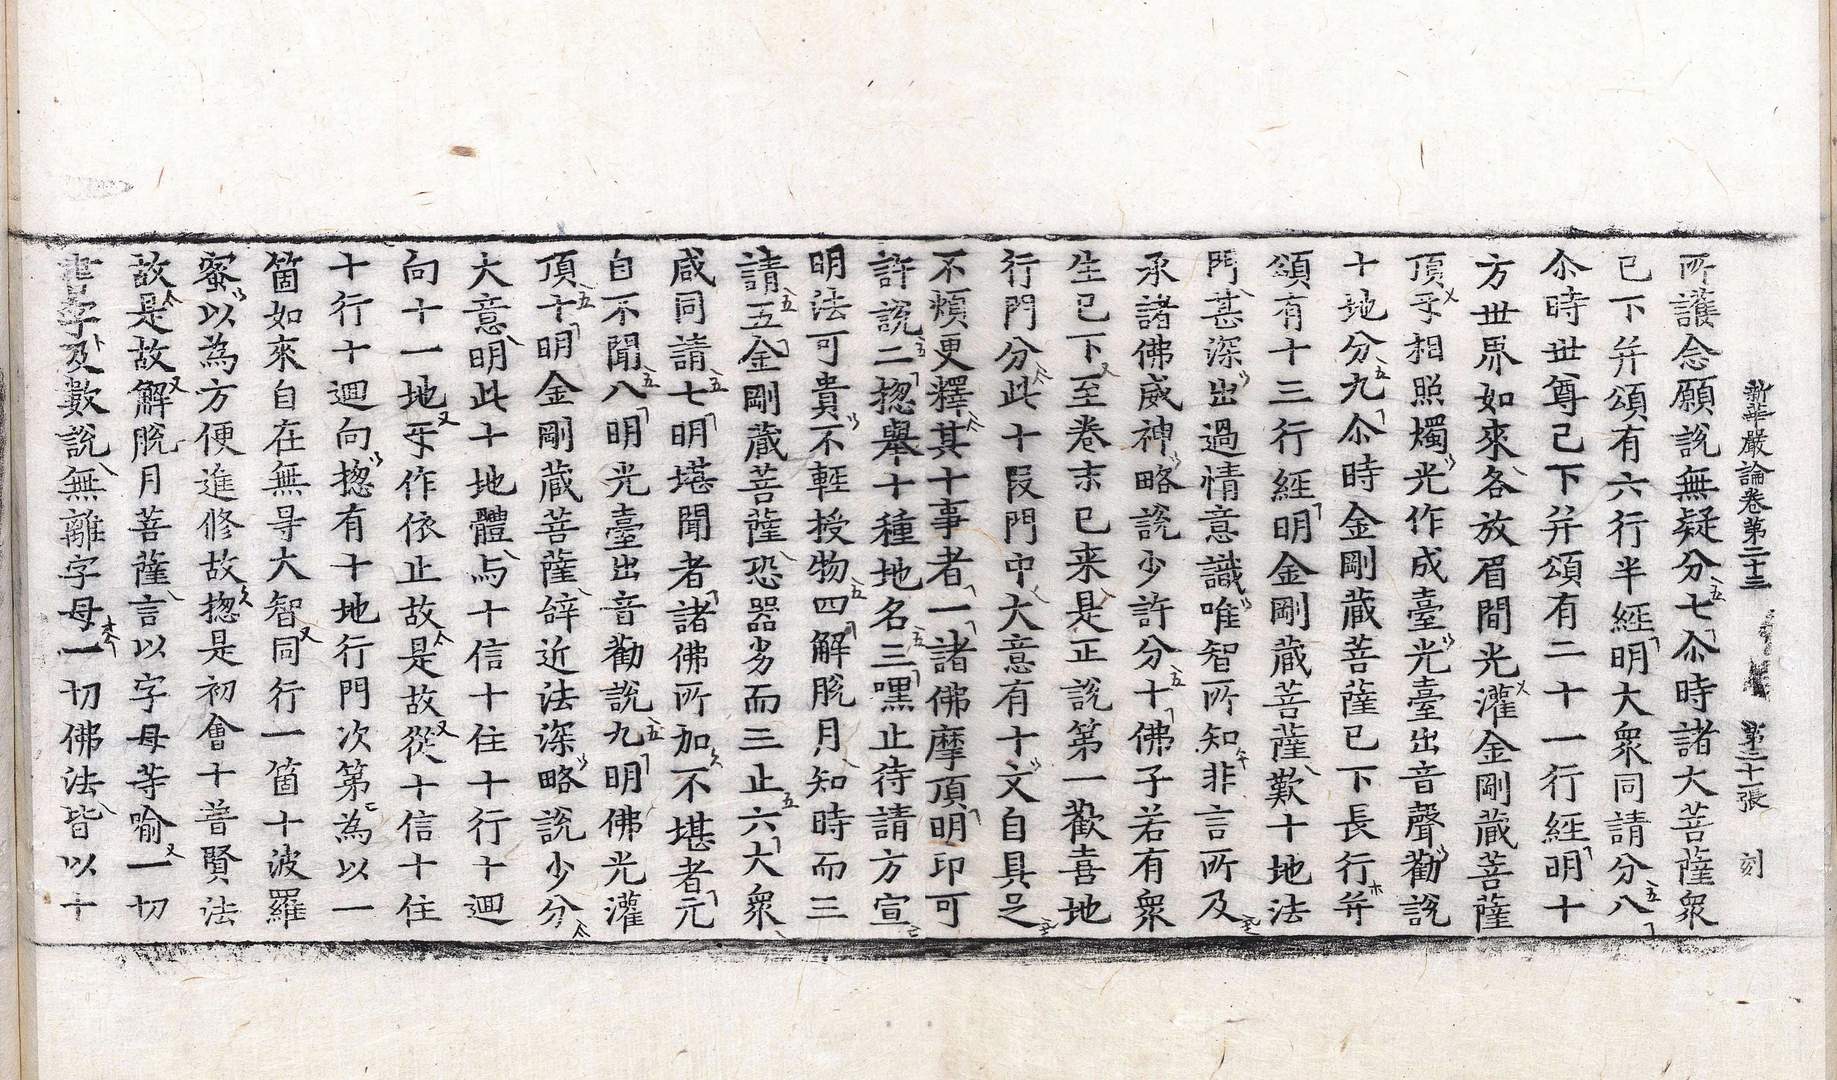 新華嚴論卷第二十三 第三十一張 刻
所護念願說無疑分七尒時諸大菩薩衆
已下并頌有六行半經明大衆同請分八
尒時世尊已下并頌有二十一行經明十
方世界如來各放眉間光灌金剛藏菩薩
頂乎相照燭光作成臺光臺出音聲勸說
十地分九尒時金剛藏菩薩已下長行并
頌有十三行經明金剛藏菩薩歎十地法
門甚深出過情意識唯智所知非言所及
承諸佛威神略說少許分十佛子若有衆
生已下至卷末已来是正說第一歡喜地
行門分此十段門中大意有十文自具足
不煩更釋其十事者一諸佛摩頂明印可
許說二揔舉十種地名三嘿止待請方宣
明法可貴不輕授物四解脫月知時而三
請五金剛藏菩薩恐器劣而三止六大衆
咸同請七明堪聞者諸佛所加不堪者元
自不聞八明光臺出音勸說九明佛光灌
頂十明金剛藏菩薩辝近法深略說少分
大意明此十地體与十信十住十行十迴
向十一地乎作依止故是故從十信十住
十行十迴向揔有十地行門次第為以一
箇如來自在無㝵大智同行一箇十波羅
蜜以為方便進修故揔是初會十普賢法
故是故解脫月菩薩言以字母等喻一切
書字及數說無離字母一切佛法皆以十